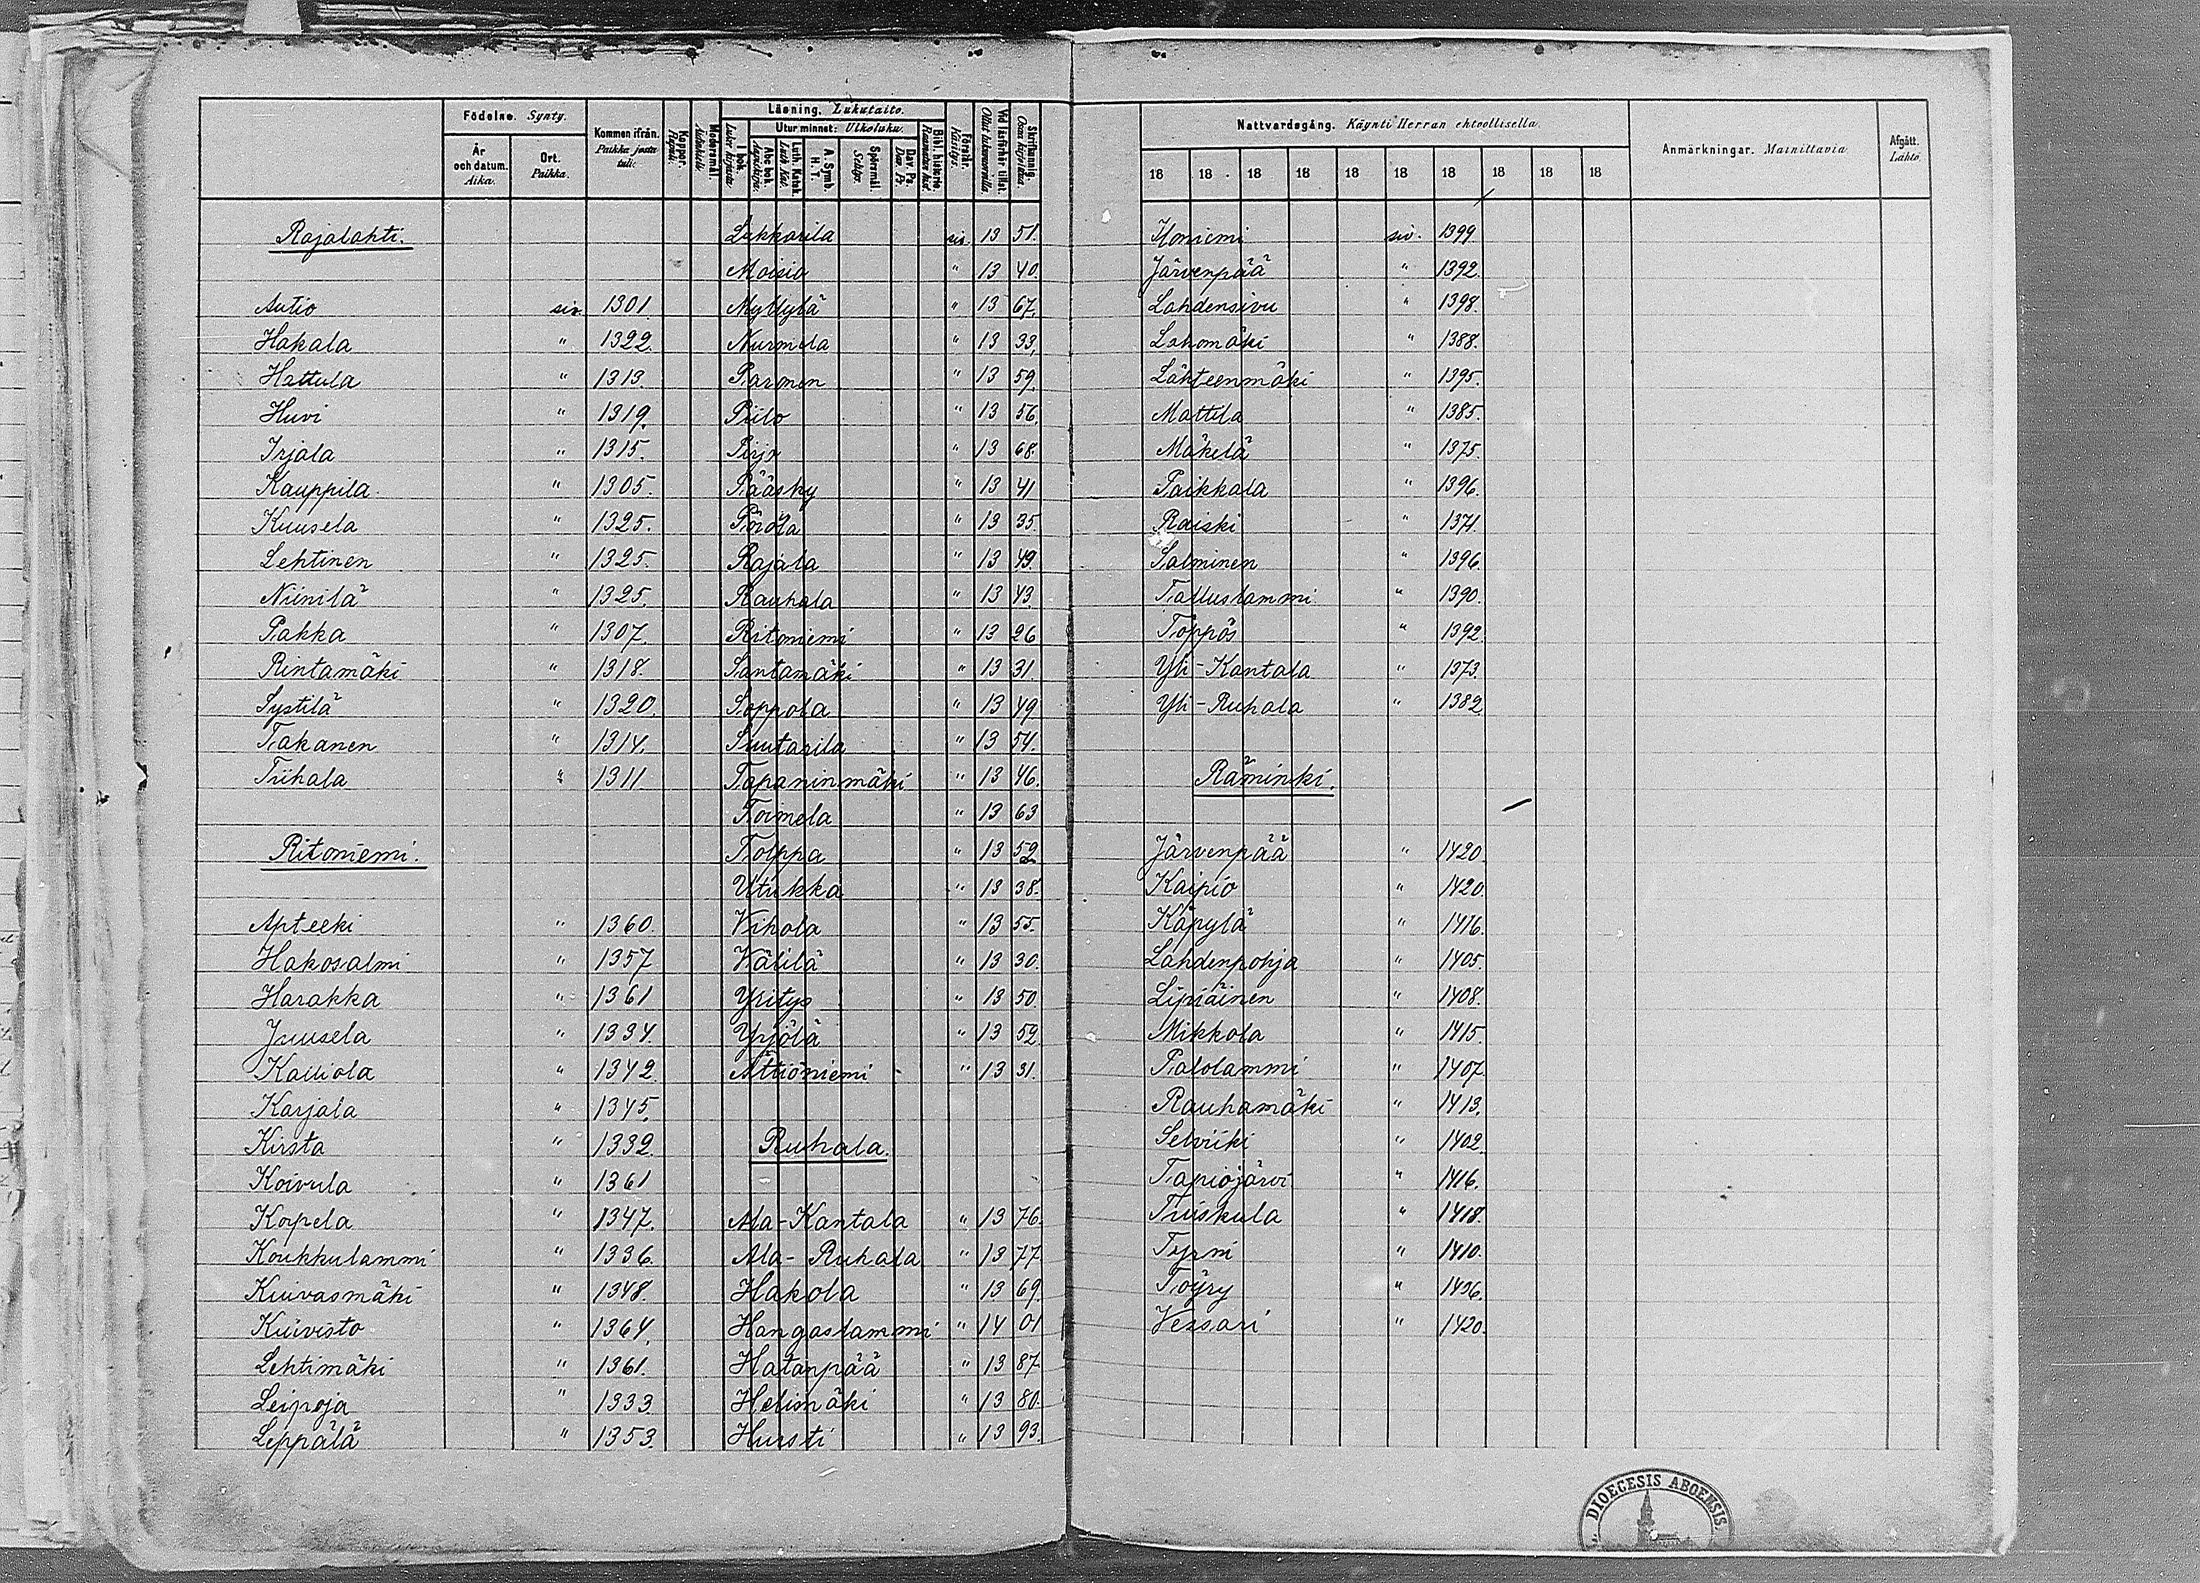 Födelse. Synty.
År och datum. Aika.
Ort. Paikka.
Kommen ifrån. Paikka josta tuli:
Koppor. Rupuli.
Modersmål. Äidinkieli.
Läsning. Lukutaito.
I bok.
Utur minnet: Ulkoluku.
Abc bok.
Luth. Katek.
A. Symb. H. T.
Spörsmål.
Dav. Ps.
Bibl. historie
Förstår. Käsitys.
Vid läsförhör tillst.
Skriftkunnig. Osaa kirjoittaa.
Rajalahti.
Autio siv. 1301.
Hakala " 1322.
Hattula " 1313.
Huvi " 1319.
Irjala " 1315.
Kauppila " 1305.
Kuusela " 1325.
Lehtinen " 1325.
Niinilä " 1325.
Pakka " 1307.
Rintamäki " 1318.
Systilä " 1320.
Takanen " 1314.
Tiihala " 1311
Ritoniemi.
Apteeki " 1360.
Hakosalmi " 1357
Harakka " 1361
Juusela " 1334.
Kalliola " 1342.
Karjala " 1345.
Kirsta " 1332.
Koivula " 1361
Korpela " 1347.
Koukkulammi " 1336.
Kuivasmäki " 1348.
Kiivisto " 1364.
Lehtimäki " 1361.
Leipoja " 1333.
Leppälä " 1353.
Lukkarila siv. 13 51.
Moisio " 13 40.
Myllylä " 13 67.
Nurmela " 13 33.
Paronen " 13 59.
Piilo " 13 56.
Pirjo " 13 68.
Pääsky " 13 41
Pörölä " 13 35.
Rajala " 13 49.
Rauhala " 13 43.
Ritoniemi " 13 26
Santamäki " 13 31.
Soppola " 13 49
Suutarila " 13 54.
Tapaninmäki " 13 46.
Toimela " 13 63
Tolppa " 13 52
Utukka " 13 38.
Vihola " 13 55.
Välilä " 13 30.
Yritys " 13 50.
Yrjölä " 13 52.
Ättiöniemi " 13 31.
Ruhala.
Ala-Kantala " 13 76.
Ala-Ruhala " 13 77
Hakola " 13 69.
Hangaslammi " 14 01
Hatanpää " 13 87.
Helimäki " 13 80.
Hursti " 13 93.
Nattvardsgång. Käynti Herran ehtoollisella.
18 18 18 18 18 18 18 18 18 18
Anmärkningar. Mainittavia.
Afgått. Lähtö.
Iloniemi siv. 1399.
Järvenpää " 1392.
Lahdensivu " 1398.
Lahomäki " 1388.
Lähteenmäki " 1395.
Mattila " 1385.
Mäkelä " 1375.
Paikkala " 1396.
Raiski " 1371.
Salminen " 1396.
Talluslammi " 1390.
Töppös " 1392.
Yli-Kantala " 1373.
Yli-Ruhala " 1382.
Räminki.
Järvenpää " 1420.
Kaipio " 1420.
Käpylä " 1416.
Lahdenpohja " 1405.
Lipiäinen " 1408.
Mikkola " 1415.
Palolammi " 1407.
Rauhamäki " 1413.
Selviiki " 1402.
Tapiojärvi " 1416.
Tuiskula " 1418.
Tyrni " 1410.
Töyry " 1406.
Vessari " 1420.
DIOECESIS ABOENSIS.